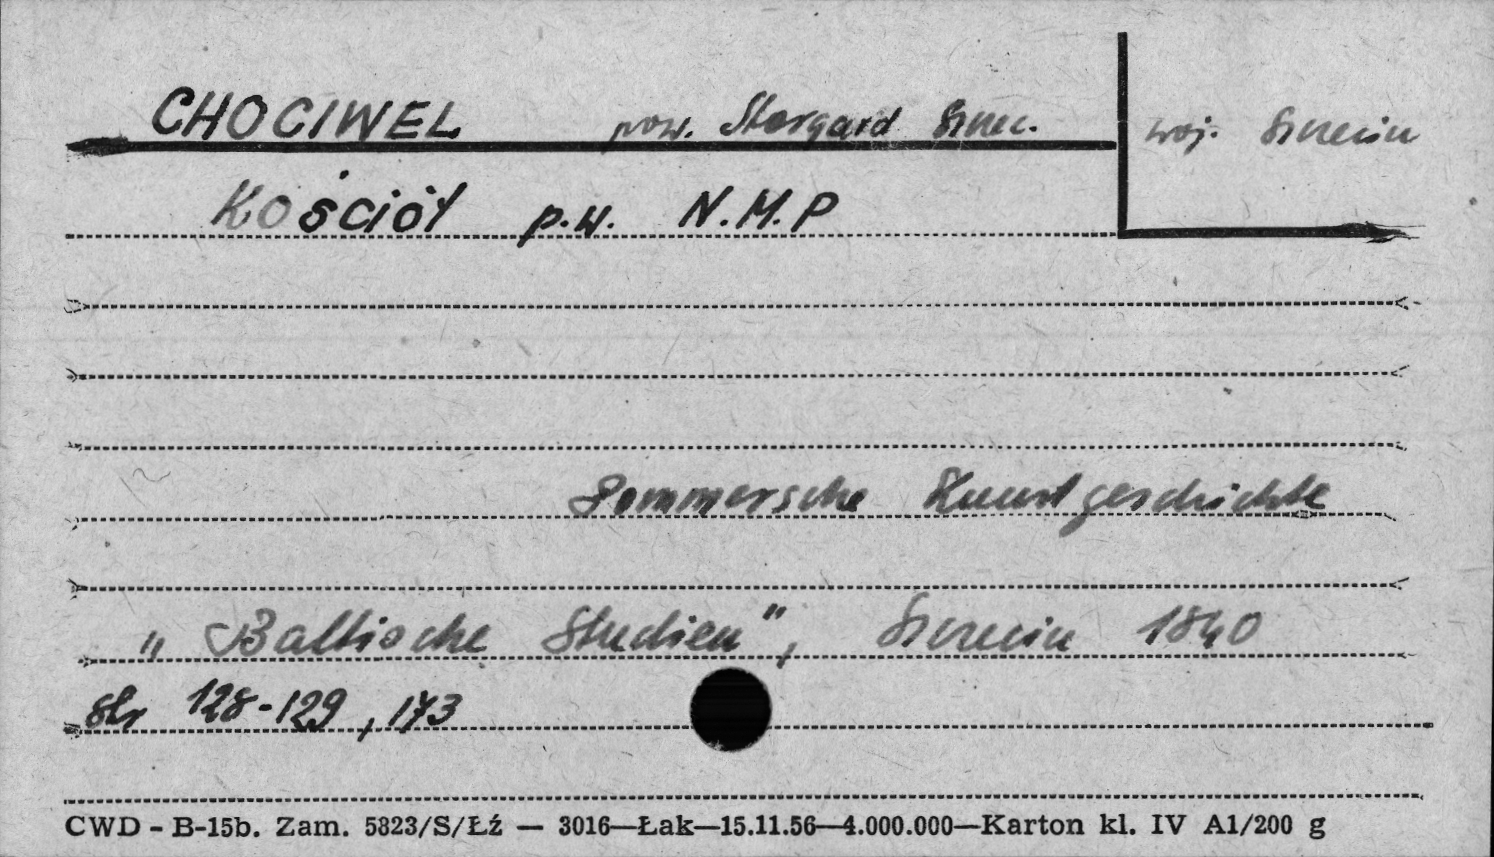 CHOCIWEL pow. Stargard Szcz. woj. Szczecin
Kościół p.w. N.M.P
Pommersche Kunstgeschichte
„Baltische Studien", Szczecin 1840
str 128-129, 173
CWD - B-15b. Zam. 5823/S/Łź — 3016—Łak—15.11.56—4.000.000—Karton kl. IV A1/200 g